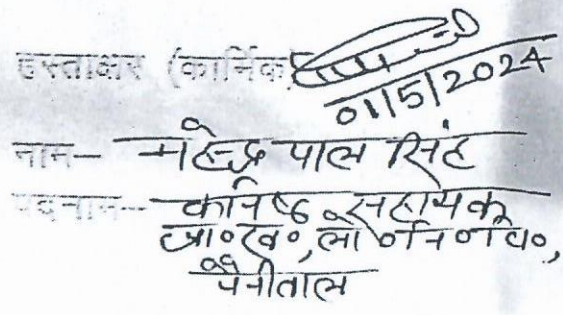 हस्ताक्षर (कार्मिक)
01/5/2024
नाम- महेन्द्र पाल सिंह
पदनाम-- कनिष्ठ सहायक
लो०नि०वि०,
नैनीताल